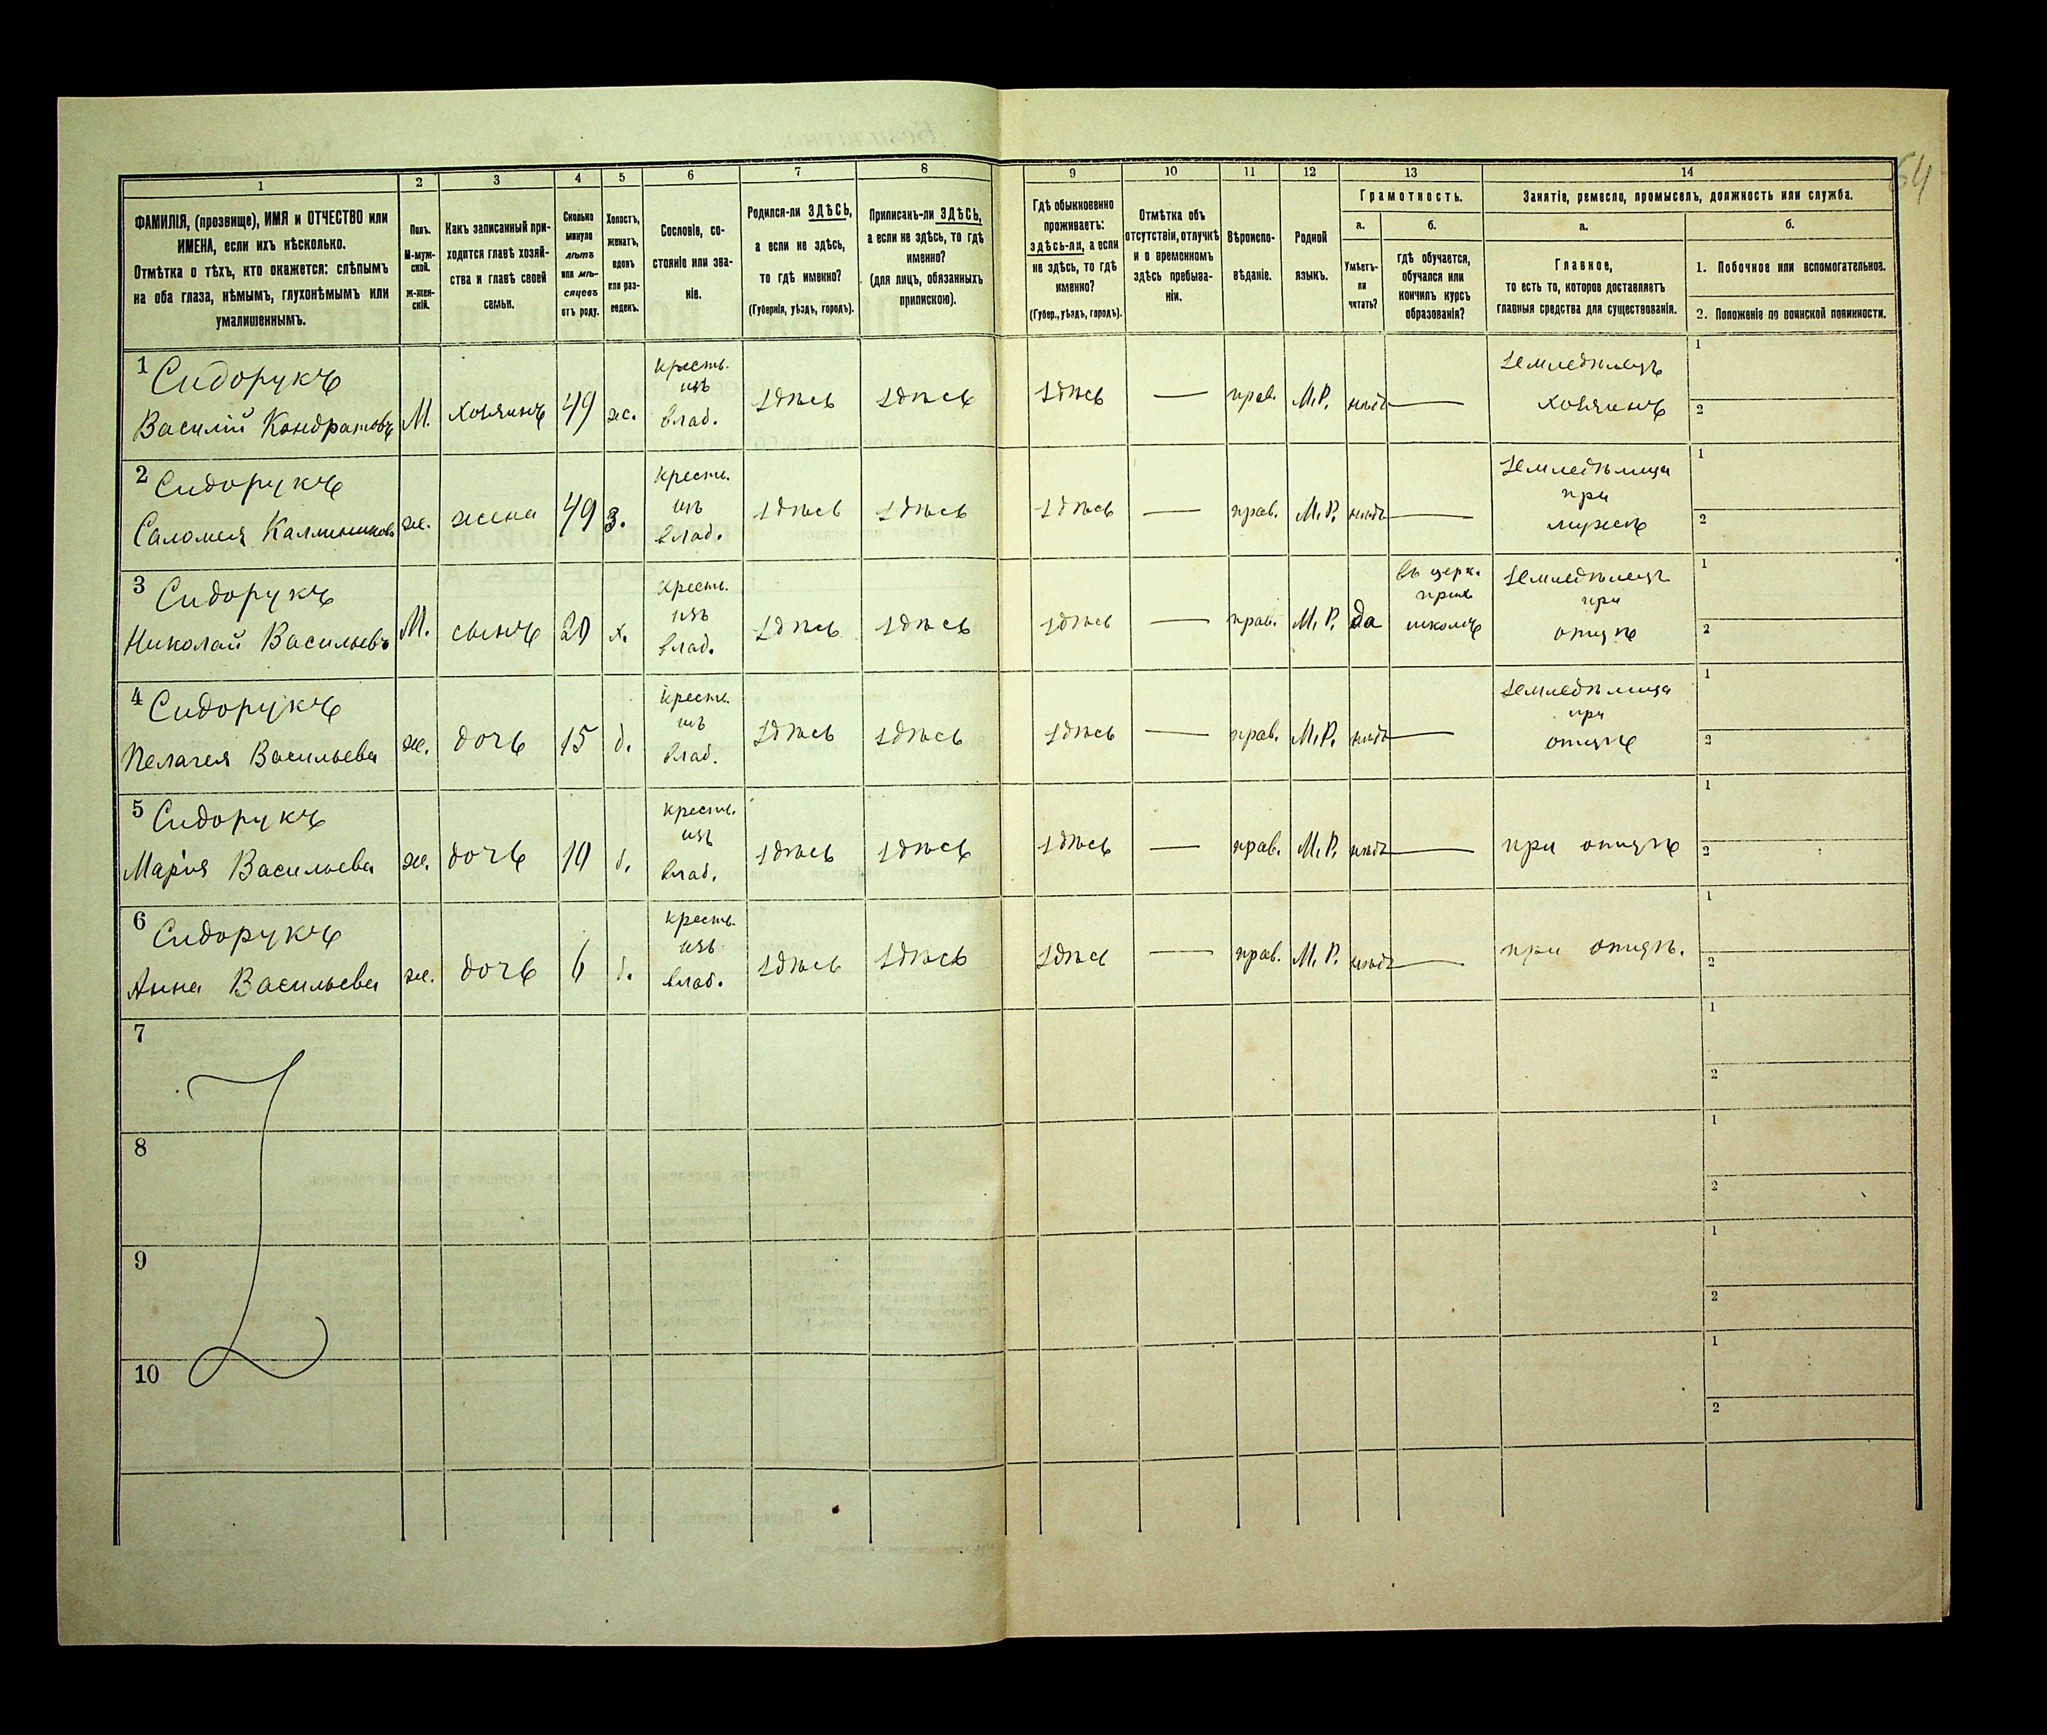 54
1 2 3 4 5 6 7 8 9 10 11 12 13 14
ФАМИЛІЯ, (прозвище), ИМЯ и ОТЧЕСТВО или
ИМЕНА, если ихъ нѣсколько.
Отмѣтка о тѣхъ, кто окажется: слѣпымъ
на оба глаза, нѣмымъ, глухонѣмымъ или
умалишеннымъ.
Полъ.
М-муж-
ской.
ж-жен-
скій.
Какъ записанный при-
ходится главѣ хозяй-
ства и главѣ своей
семьи.
Сколько
минуло
лѣтъ
или мѣ-
сяцевъ
отъ роду.
Холостъ,
женатъ,
вдовъ
или раз-
веденъ.
Сословіе, со-
стояніе или зва-
ніе.
Родился-ли ЗДѢСЬ,
а если не здѣсь,
то гдѣ именно?
(Губернія, уѣздъ, городъ).
Приписанъ-ли ЗДѢСЬ,
а если не здѣсь, то гдѣ
именно?
(для лицъ, обязанныхъ
припискою).
Гдѣ обыкновенно
проживаетъ:
здѣсь-ли, а если
не здѣсь, то гдѣ
именно?
(Губер., уѣздъ, городъ).
Отмѣтка объ
отсутствіи, отлучкѣ
и о временномъ
здѣсь пребыва-
ніи.
Вѣроиспо-
вѣданіе.
Родной
языкъ.
Грамотность.
а.
Умѣетъ-
ли
читать?
б.
гдѣ обучается,
обучался или
кончилъ курсъ
образованія?
Занятіе, ремесло, промыселъ, должность или служба.
а.
Главное,
то есть то, которое доставляетъ
главныя средства для существованія.
б.
1. Побочное или вспомогательное.
2. Положеніе по воинской повинности.
1 Сидорукъ
Василій Кондратовъ
М.
хозяинъ
49
ж.
крестъ.
изъ
влад.
здѣсь
здѣсь
здѣсь
—
прав.
М.Р.
нѣтъ
—
земледѣлецъ
хозяинъ
1
2
2 Сидорукъ
Саломея Каллиникова
ж.
жена
49
з.
крестъ.
изъ
влад.
здѣсь
здѣсь
здѣсь
—
прав.
М.Р.
нѣтъ
—
земледѣлица
при
мужѣ
1
2
3 Сидорукъ
Николай Васильевъ
М.
сынъ
20
х.
крестъ.
изъ
влад.
здѣсь
здѣсь
здѣсь
—
прав.
М.Р.
Да
въ церк.
прих.
школѣ
земледѣлецъ
при
отцѣ
1
2
4 Сидорукъ
Пелагея Васильева
ж.
дочь
15
д.
крестъ.
изъ
влад.
здѣсь
здѣсь
здѣсь
—
прав.
М.Р.
нѣтъ
—
земледѣлица
при
отцѣ
1
2
5 Сидорукъ
Марія Васильева
ж.
дочь
10
д.
крестъ.
изъ
влад.
здѣсь
здѣсь
здѣсь
—
прав.
М.Р.
нѣтъ
—
при отцѣ
1
2
6 Сидорукъ
Анна Васильева
ж.
дочь
6
д.
крестъ.
изъ
влад.
здѣсь
здѣсь
здѣсь
—
прав.
М.Р.
нѣтъ
—
при отцѣ.
1
2
7
1
2
8
1
2
9
1
2
10
1
2